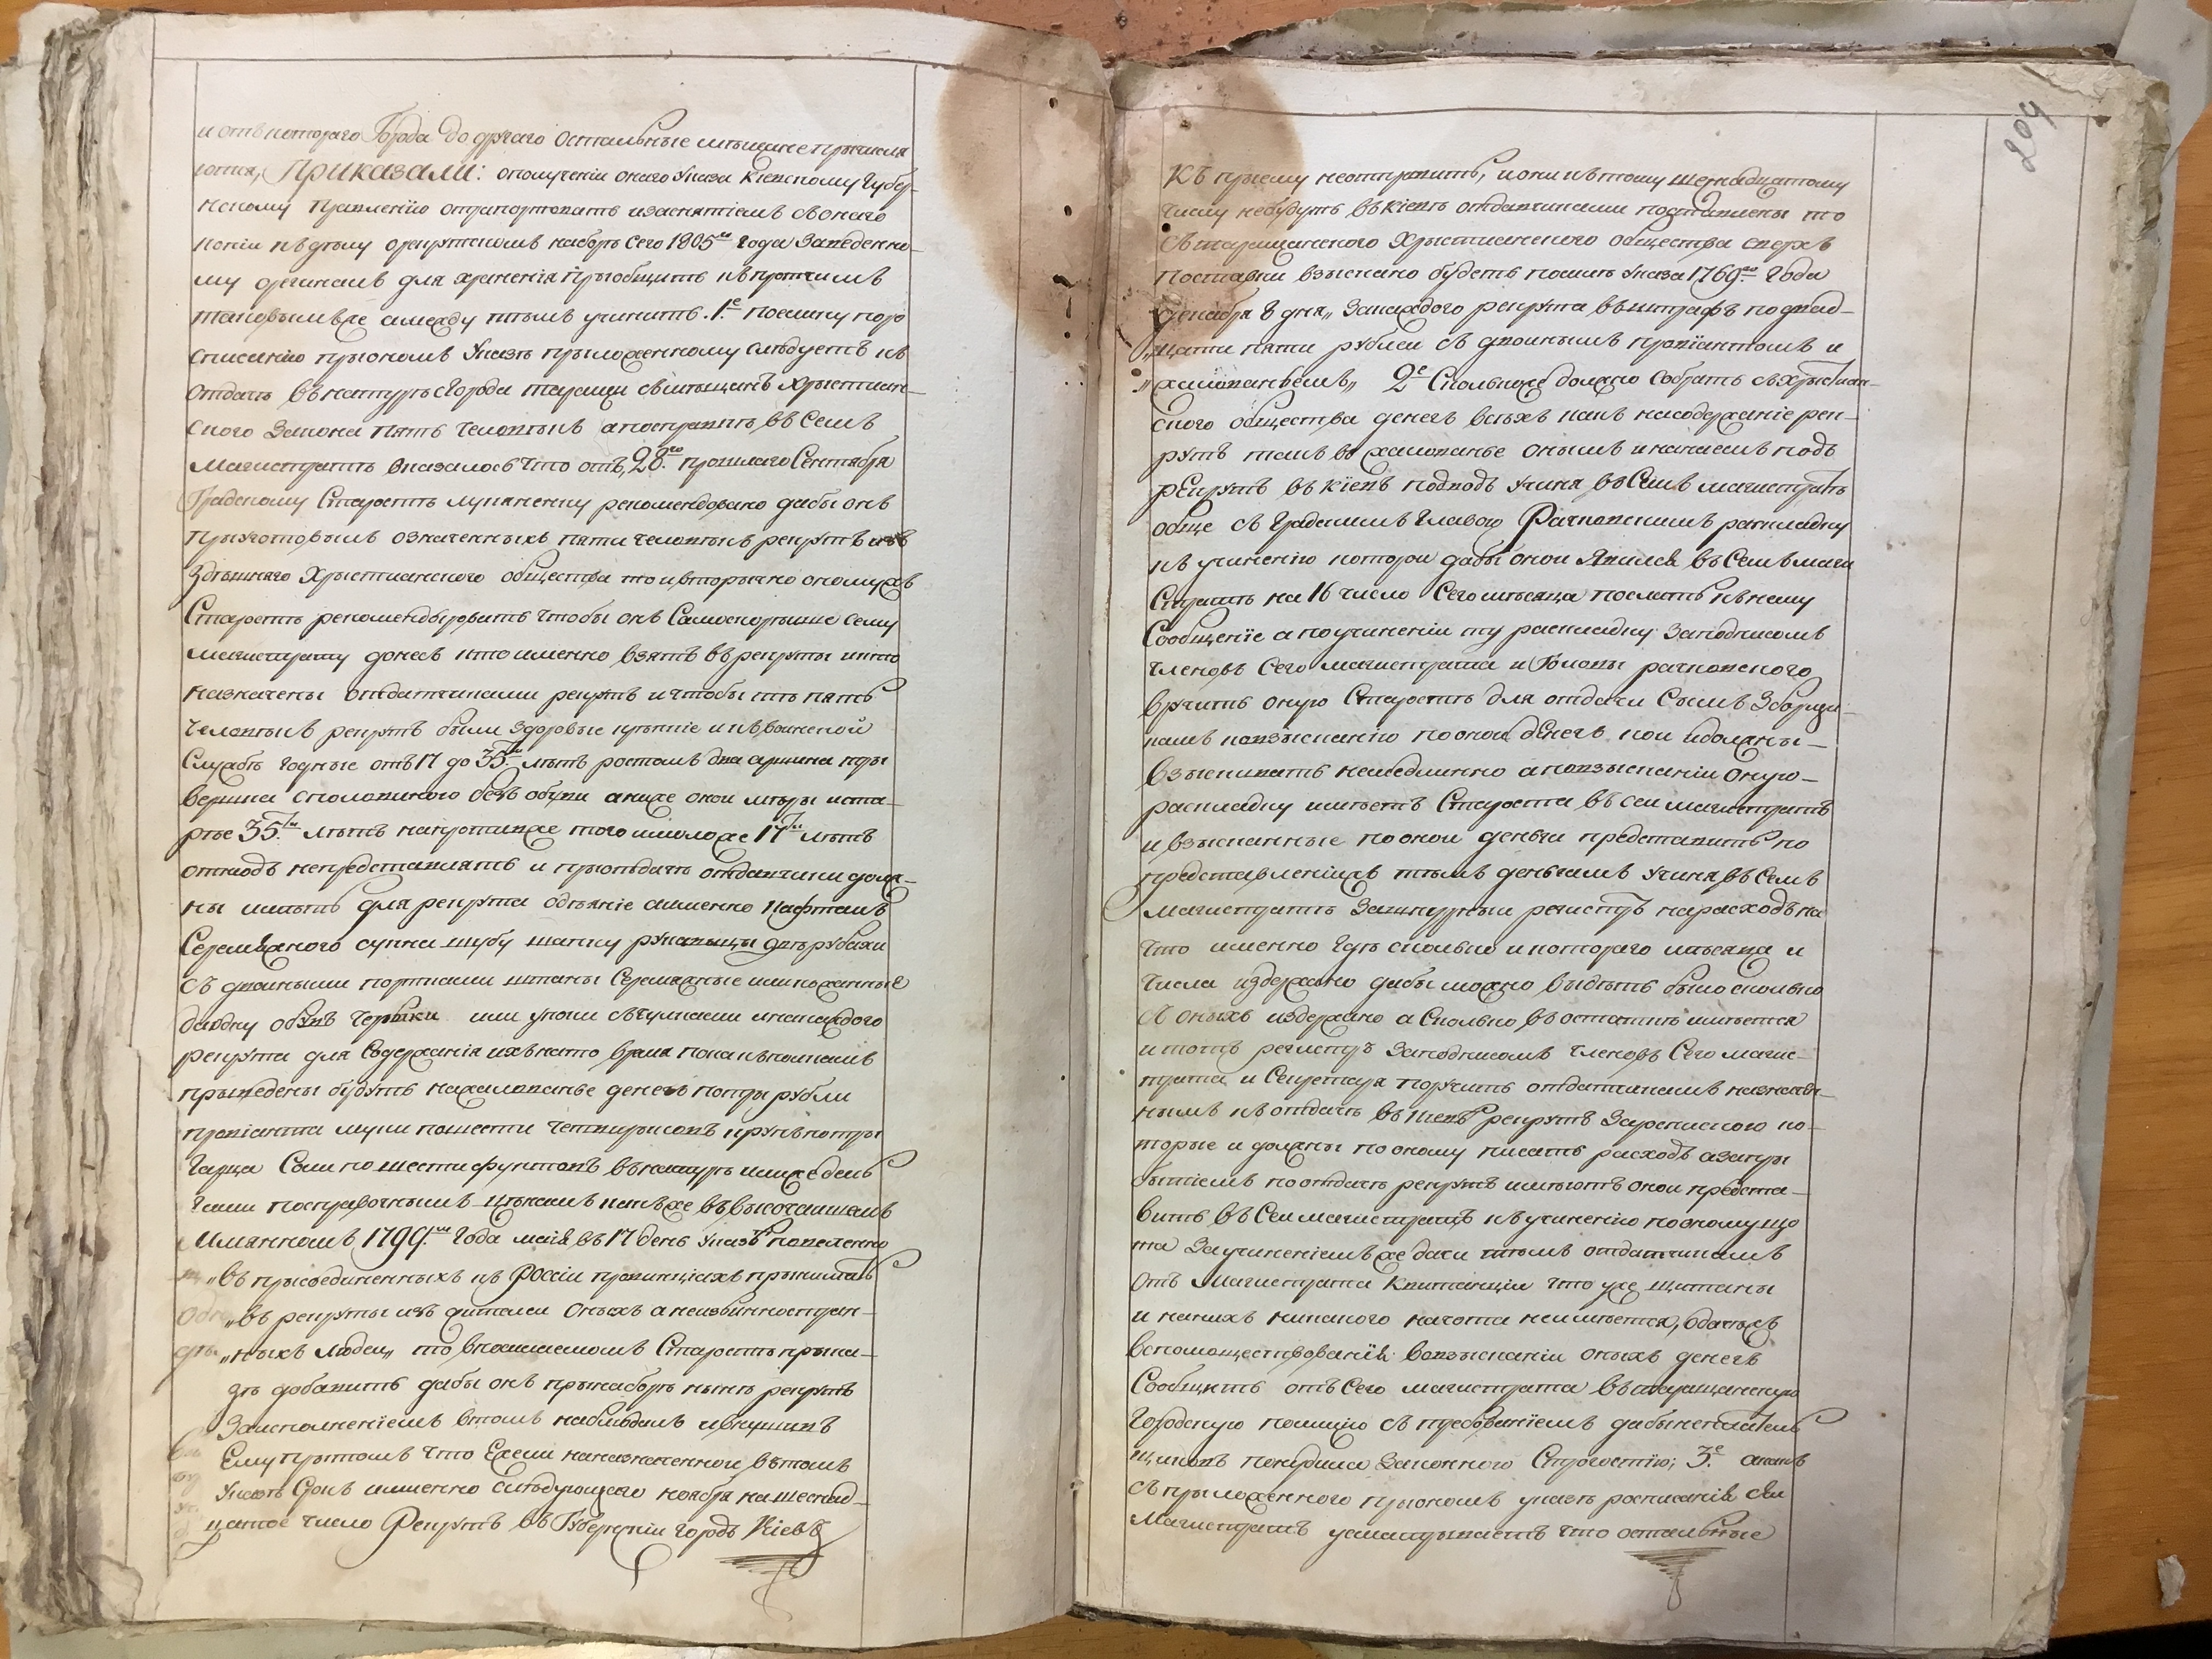 и отъ котораго Города до другаго остальные мѣщане причисля
ются, Приказали: ополученіи онаго Указа Кіевскому Губер-
нскому Правленію отрапортовать изаснятіемъ съ онаго
копіи къ дѣлу орекрутскомъ наборѣ сего 1805го Года Заведенно-
му оргиналъ для храненія приобщить къ протчимъ
таковымъ же а между тѣмъ учинить. 1е поелику поро
списанію приономъ Указѣ приложенному слѣдуетъ къ
отдачѣ въ натурѣ с Города Таращи съ мѣщанъ христиан-
ского Закона пять человѣкъ а посправкѣ въ семъ
Магистратѣ оказалось что отъ 28го прошлаго Сентября
Градскому Старостѣ Лукяненку рекомендовано дабы онъ
приуготовилъ означенныхъ пяти человѣкъ рекрутъ изъ
Здѣшняго Христианского общества то и вторично ономужъ
Старостѣ рекомендовать чтобы онъ самоскорѣише сему
магистрату донесъ кто именно взятъ въ рекруты и кто
назначены отдатчиками рекрутъ и чтобы тѣ пять
человѣкъ рекрутъ были здоровые крѣпкіе и къ воинской
Службѣ годные отъ 17 до 35ти лѣтъ ростомъ два аршина три
вершка споловиною безъ обуви а ниже оной мѣры иста-
рѣе 35ти лѣтъ напротивже того имоложе 17ти лѣтъ
отнюдъ непредставлять и приотдачѣ отдатчики долж-
ны имѣть для рекрута одѣяніе аименно Кафтанъ
Сермяжного сукна шубу шапку рукавицы двѣ рубахи
съ двоиными портками штаны Сермяжные или кожанные
да одну обувь Черыки или упоки съ чулками и на каждого
рекрута для Содержанія ихъ на то время пока къ командамъ
приведены будутъ на жалованье денегъ по три рубли
провіанта муки по шести четвириковъ крупъ по три
Гарца Соли по шести фунтовъ въ натурѣ или же день
гами посправочнымъ цѣнамъ какъже въ высочаишемъ
Имянномъ 1799го Года маія въ 17 день указѣ повеленно
„въ присоединенныхъ къ Россіи провинціяхъ принимать
„въ рекруты изъ жителеи оныхъ а неизъ иностран-
„ныхъ людеи„ то впоминаемомъ Старостѣ прика-
зѣ добавить дабы онъ принаборѣ нынѣ рекрутъ
Заисполненіемъ втомъ наблюдалъ и внушить
Ему притомъ что Ежели наназначенной въ томъ
Указѣ Срокъ именно слѣдующаго ноября на шеснад-
цатое число Рекрутъ въ Губернскіи городъ Кіевъ
204
Къ приему неотправитъ, и они кътому шеснадцатому
числу небудутъ въ Кіевъ отдатчиками поставлены то
съ таращанского Христианского общества сверхъ
поставки взыскано будетъ посилѣ Указа 1769го Года
„декабря 8 дня„ Закаждого рекрута въ штрафъ по двад-
„цати пяти рублеи съ двоинымъ провіантомъ и
„жалованьемъ„ 2е Сколькоже должно собрать съ христиан-
ского общества денегъ всѣхъ какъ насодержаніе рек-
рутъ такъ въ жалованье онымъ и на наемъ подъ
рекрутъ въ Кіевъ подводъ учиня въ Семъ магистратѣ
обще съ Градскимъ Главою Рачковскимъ раскладку
къ учиненію которои дабы онои явился въ Семъ маги
Стратѣ на 16 число Сего мѣсяца послать къ нему
Сообщеніе а поучиненіи ту раскладку Заподписомъ
членовъ Сего магистрата и Головы рачковского
вручить оную Старостѣ для отдачи Съимъ Зборщи-
камъ ковзысканію поонои денегъ кои идолжны
взыскивать немедлѣнно а повзысканіи оную
раскладку имѣетъ Староста въ сеи магистратъ
и взысканные поонои денги представить по
представленіижъ тѣмъ деньгамъ учиня въ Семъ
магистратѣ Зашнурныи регистръ на расходъ на
что именно гдѣ сколько и котораго мѣсяца и
числа издержано дабы можно видѣть было сколько
съ оныхъ издержано а сколько въ остаткѣ имѣется
и тотъ регистръ Заподписомъ членовъ Сего магис-
трата и Секретаря поручить отдатчикамъ назначен-
нымъ къ отдачѣ въ Кіевъ рекрутъ Заросписою ко-
торые и должны по оному писать расходъ а запри
бытіемъ по отдачѣ рекрутъ имѣютъ онои предста-
вить въ Сеи магистратъ къ учиненію поономущо
та Заучиненіемъже дачи тѣмъ отдатчикамъ
отъ Магистрата Квитанціи что уже щитаны
и на нихъ никакого начота неимѣется, одачѣжъ
вспомоществованія вовзысканіи оныхъ денегъ
Сообщить отъ Сего магистрата въ таращанскую
Городскую полицію съ требованіемъ дабы неплатель
щиковъ понудила Законного Строгостію; 3е а какъ
съ приложенного приономъ указѣ росписанія сеи
Магистратъ усматриваетъ что остальные